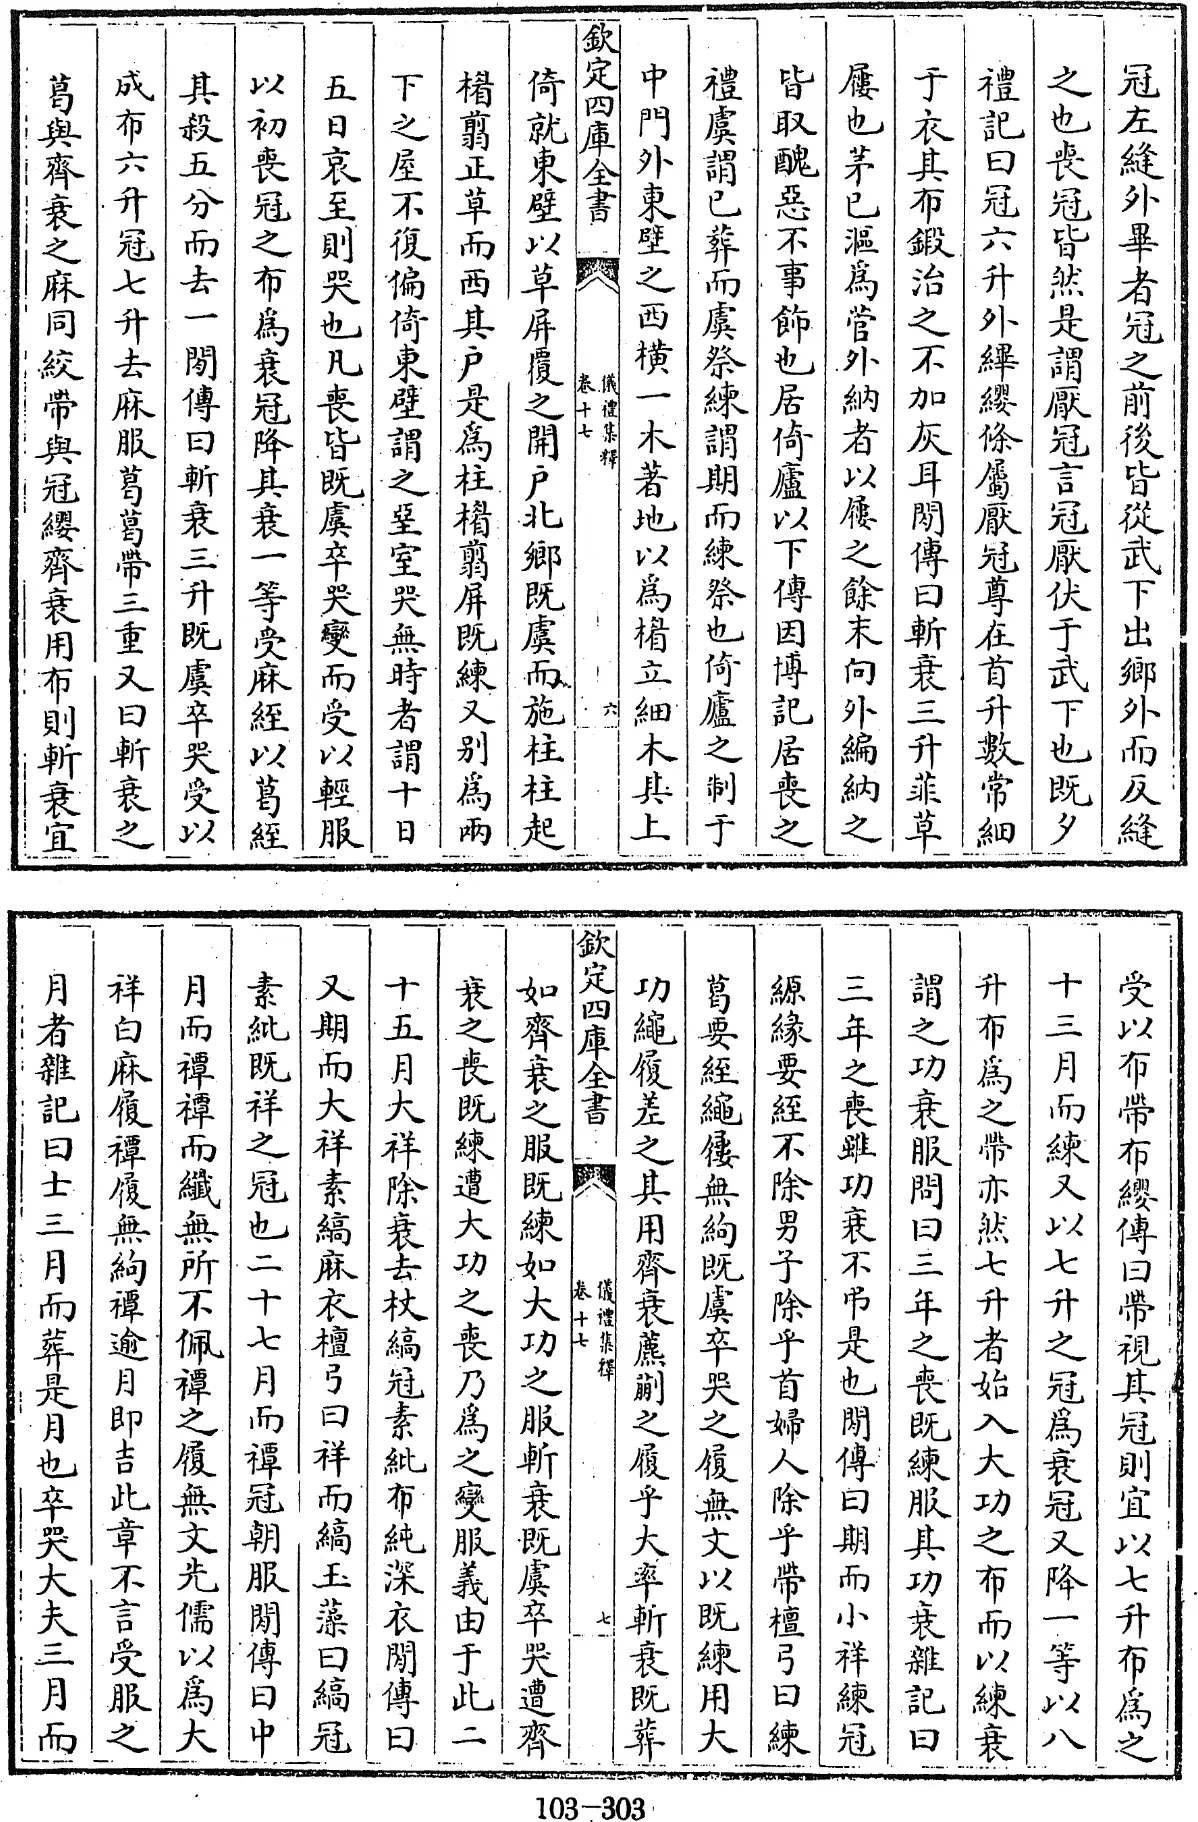 冠左縫外畢者冠之前後皆從武下出鄉外而反縫
之也喪冠皆然是謂厭冠言冠厭伏于武下也既夕
禮記曰冠六升外縪纓條屬厭冠尊在首升數常細
于衣其布鍛治之不加灰耳閒傳曰斬衰三升菲草
屨也茅已漚為菅外納者以屨之餘末向外編納之
皆取醜惡不事飾也居倚廬以下傳因博記居喪之
禮虞謂已葬而虞祭練謂期而練祭也倚廬之制于
中門外東壁之西横一木著地以為楣立細木其上
欽定四庫全書
儀禮集釋
卷十七
六
倚就東壁以草屏覆之開戶北鄉既虞而施柱柱起
楣翦正草而西其戶是為柱楣翦屏既練又别為兩
下之屋不復偏倚東壁謂之堊室哭無時者謂十日
五日哀至則哭也凡喪皆既虞卒哭變而受以輕服
以初喪冠之布為衰冠降其衰一等受麻絰以葛絰
其殺五分而去一閒傳曰斬衰三升既虞卒哭受以
成布六升冠七升去麻服葛葛帶三重又曰斬衰之
葛與齊衰之麻同絞帶與冠纓齊衰用布則斬衰宜
受以布帶布纓傳曰帶視其冠則宜以七升布為之
十三月而練又以七升之冠為衰冠又降一等以八
升布為之帶亦然七升者始入大功之布而以練衰
謂之功衰服問曰三年之喪既練服其功衰雜記曰
三年之喪雖功衰不弔是也閒傳曰期而小祥練冠
縓緣要絰不除男子除乎首婦人除乎帶檀弓曰練
葛要絰繩屨無絇既虞卒哭之屨無文以既練用大
功繩屨差之其用齊衰藨蒯之屨乎大率斬衰既葬
欽定四庫全書
儀禮集釋
卷十七
七
如齊衰之服既練如大功之服斬衰既虞卒哭遭齊
衰之喪既練遭大功之喪乃為之變服義由于此二
十五月大祥除衰去杖縞冠素紕布純深衣閒傳曰
又期而大祥素縞麻衣檀弓曰祥而縞玉藻曰縞冠
素紕既祥之冠也二十七月而禫冠朝服閒傳曰中
月而禫禫而纖無所不佩禫之屨無文先儒以為大
祥白麻屨禫屨無絇禫逾月即吉此章不言受服之
月者雜記曰士三月而葬是月也卒哭大夫三月而
103-303